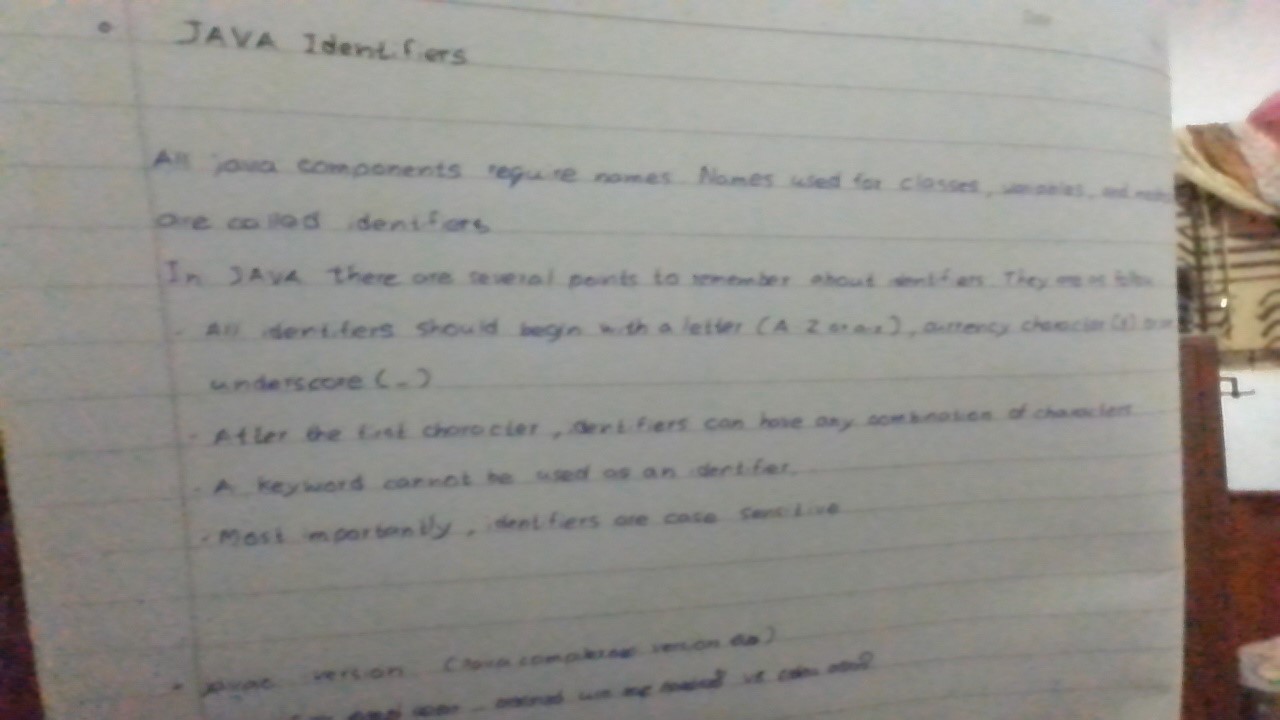 JAVA Identifiers
All java components require names. Names used for classes, variables, and
are called identifiers
In JAVA there are several points to remember about identifiers. They are as follow
- All identifiers should begin with a letter (A-Z or a-z), currency character ($) or an
underscore (_)
- After the first character, identifiers can have any combination of characters
- A keyword cannot be used as an identifier.
- Most importantly, identifiers are case sensitive
version